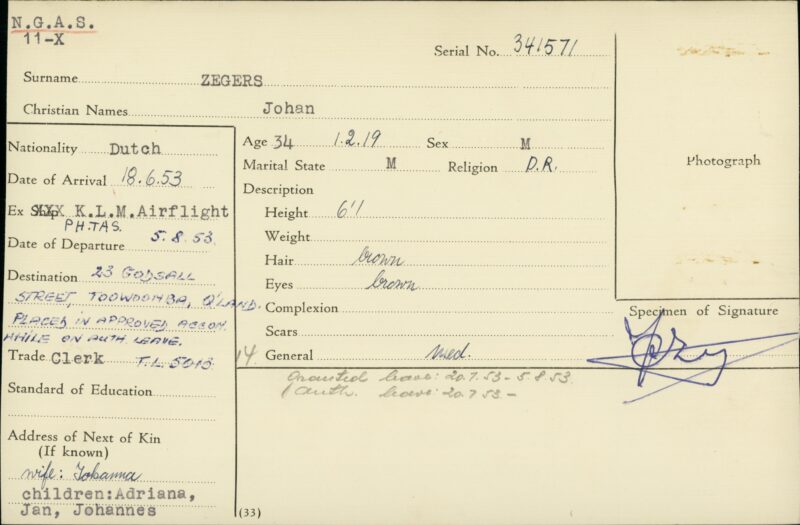 N.G.A.S.
11-X
Serial No. 341571
Surname ZEGERS
Christian Names Johan
Nationality Dutch
Date of Arrival 18.6.53
Ex Ship XXX K.L.M.Airflight
PH.TAS.
Date of Departure 5.8.53
Destination 23 GODSALL
STREET, TOOWOOMBA, Q'LAND.
PLACED IN APPROVED ACCOM.
WHILE ON AUTH LEAVE.
Trade Clerk T.L. 5013
Standard of Education
Address of Next of Kin
(If known)
wife: Johanna
children:Adriana,
Jan, Johannes
Age 34 1.2.19 Sex M
Marital State M Religion D.R.
Description
Height 6'1
Weight
Hair brown
Eyes brown
Complexion
Scars
14 General med.
Granted leave: 20.7.53-5.8.53
Auth. leave: 20.7.53-
(33)
Photograph
Specimen of Signature